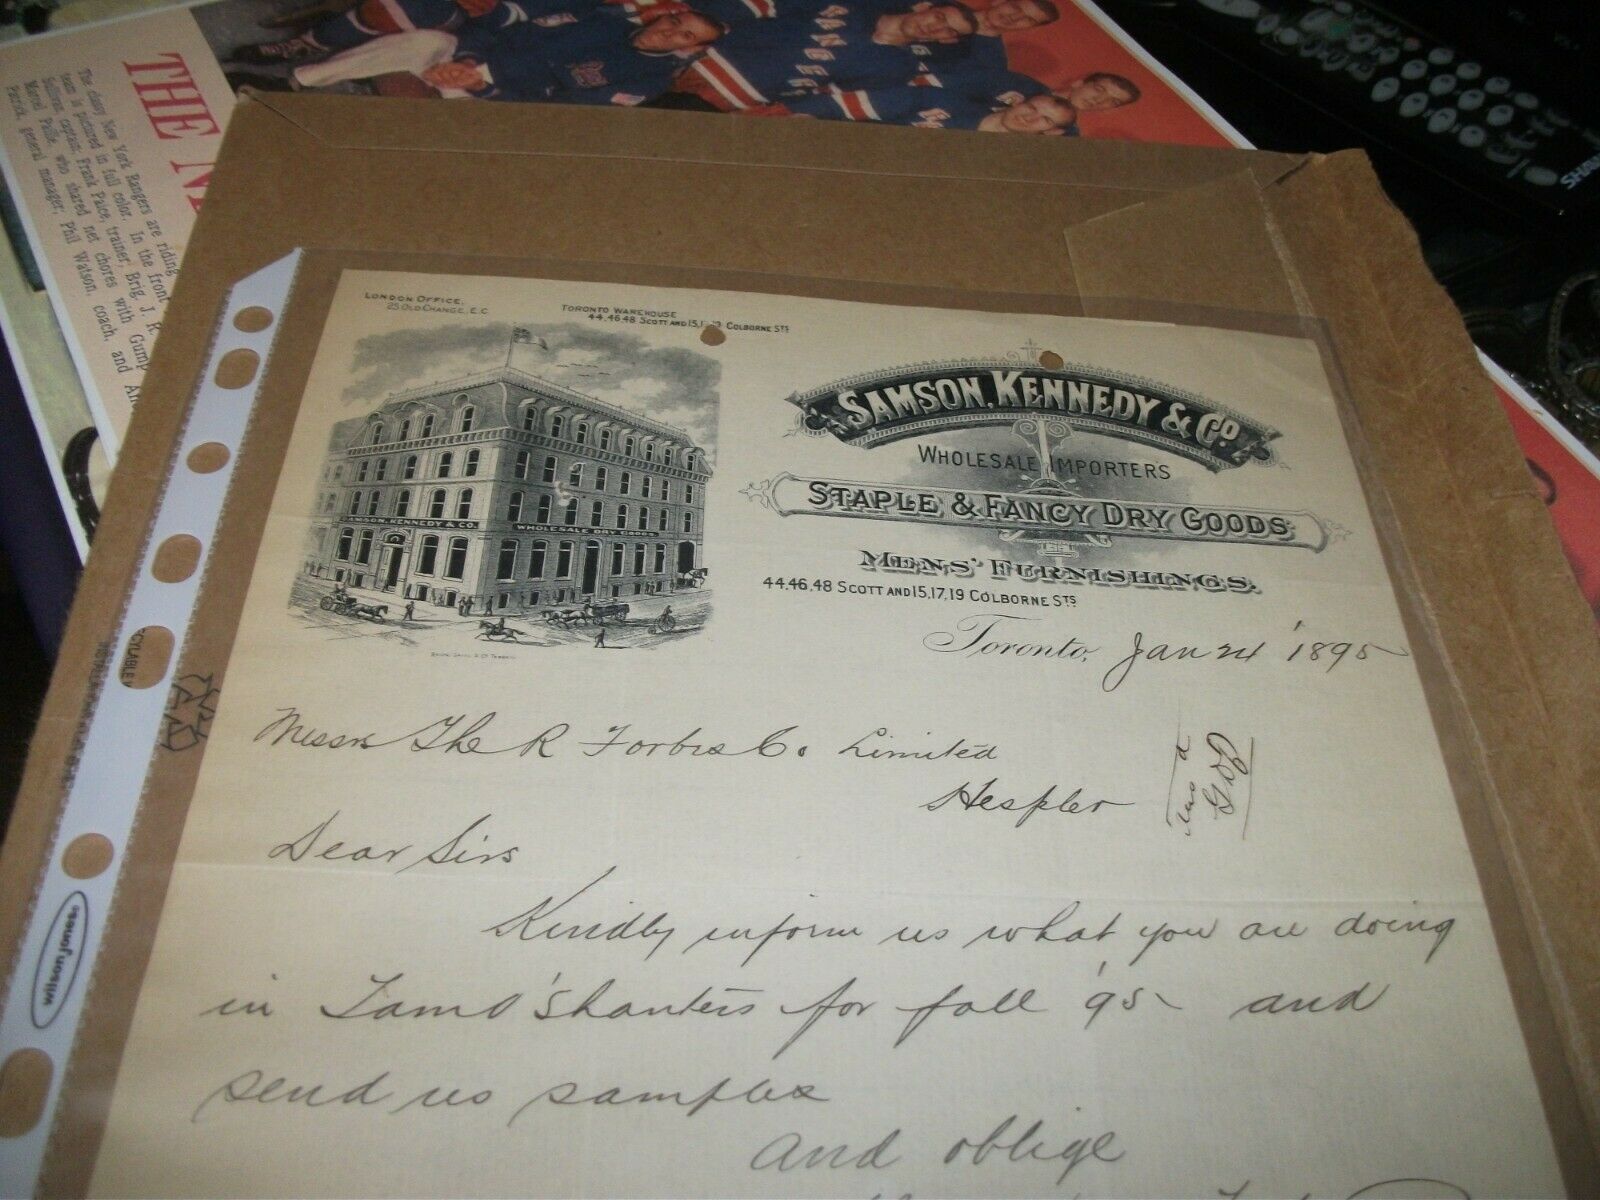 THE N
The classy New York Rangers are riding
team is pictured in full color. In the front
Sullivan, captain; Frank Paice, trainer; Brig. J. R.
Marcel Paille, who shared net chores with Gump
Patrick, general manager; Phil Watson, coach, and
SHA
LONDON OFFICE,
25 OLD CHANGE, E.C.
TORONTO WAREHOUSE
44.46.48 SCOTT AND 15,17,19 COLBORNE STS
SAMSON, KENNEDY & CO.
WHOLESALE DRY GOODS
SAMSON, KENNEDY & CO
WHOLESALE IMPORTERS
STAPLE & FANCY DRY GOODS
MENS' FURNISHINGS.
44.46.48 SCOTT AND 15,17,19 COLBORNE STS
Toronto, Jan 24 1895
Messrs The R Forbes Co. Limited
Hespler
Dear Sirs
Kindly inform us what you are doing
in Tam O'Shanters for fall '95 and
send us samples
and oblige
wilson jones